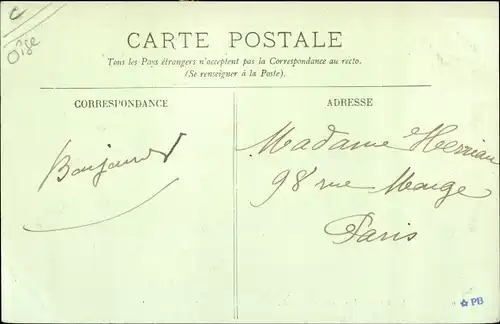 C
Oise
CARTE POSTALE
Tous les Pays étrangers n'acceptent pas la Correspondance au recto.
(Se renseigner à la Poste).
CORRESPONDANCE
Bonjour
ADRESSE
Madame
98 rue Monge
Paris
PB